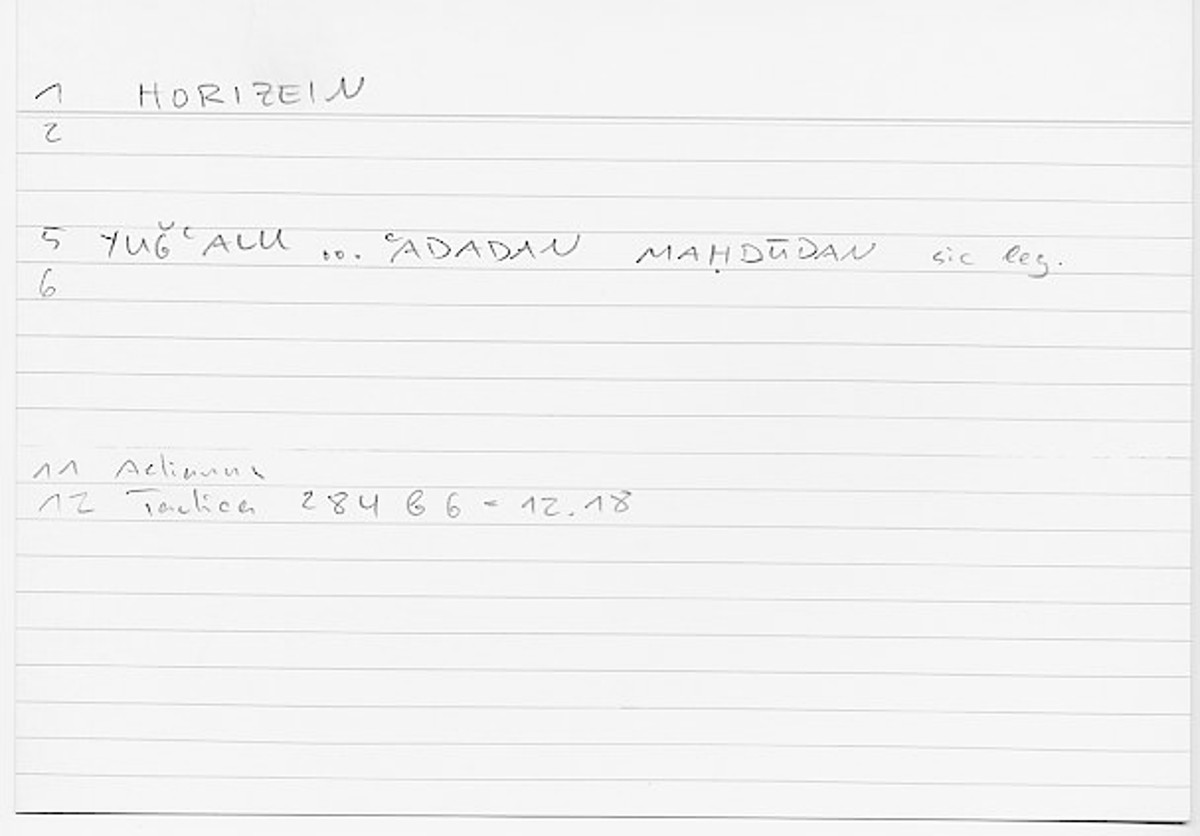 1 HORIZEIN
2
5 YUǦʿALU ... ʿADADAN MAḤDŪDAN sic leg.
6
11 Aelianus
12 Tactica 284 b 6 = 12.18